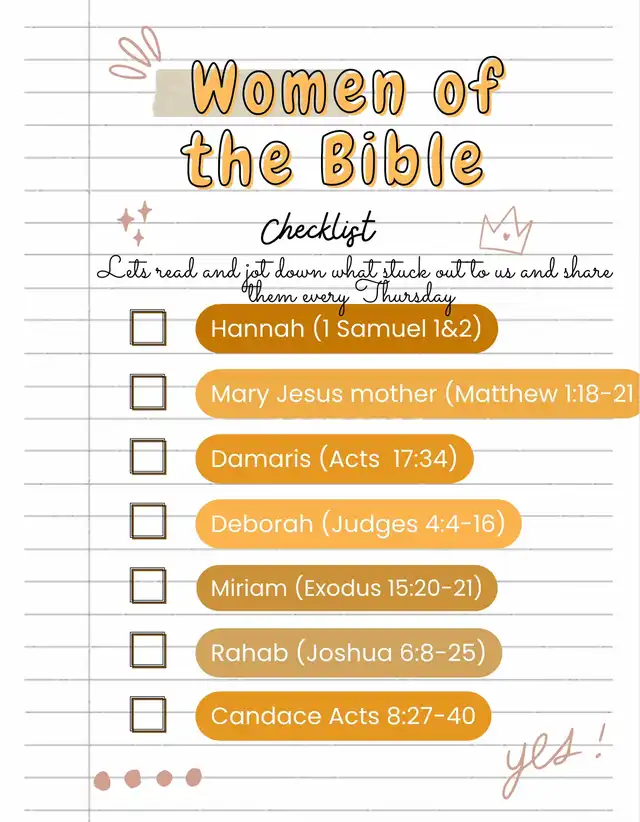 Women of
the Bible
Checklist
Lets read and jot down what stuck out to us and share
them every Thursday
Hannah (1 Samuel 1&2)
Mary Jesus mother (Matthew 1:18-21
Damaris (Acts 17:34)
Deborah (Judges 4:4-16)
Miriam (Exodus 15:20-21)
Rahab (Joshua 6:8-25)
Candace Acts 8:27-40
yes!